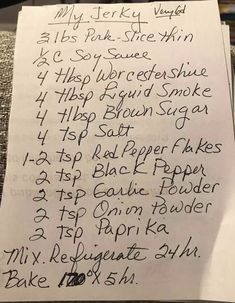 My Jerky Very Gd
3 lbs Pork-Slice thin
1/2 C Soy Sauce
4 Tbsp Worcestershire
4 Tbsp Liquid Smoke
4 Tbsp Brown Sugar
4 tsp Salt
1-2 tsp Red Pepper Flakes
2 tsp Black Pepper
2 tsp Garlic Powder
2 tsp Onion Powder
2 tsp Paprika
Mix. Refrigerate 24 hr.
Bake 170° x 5 hr.